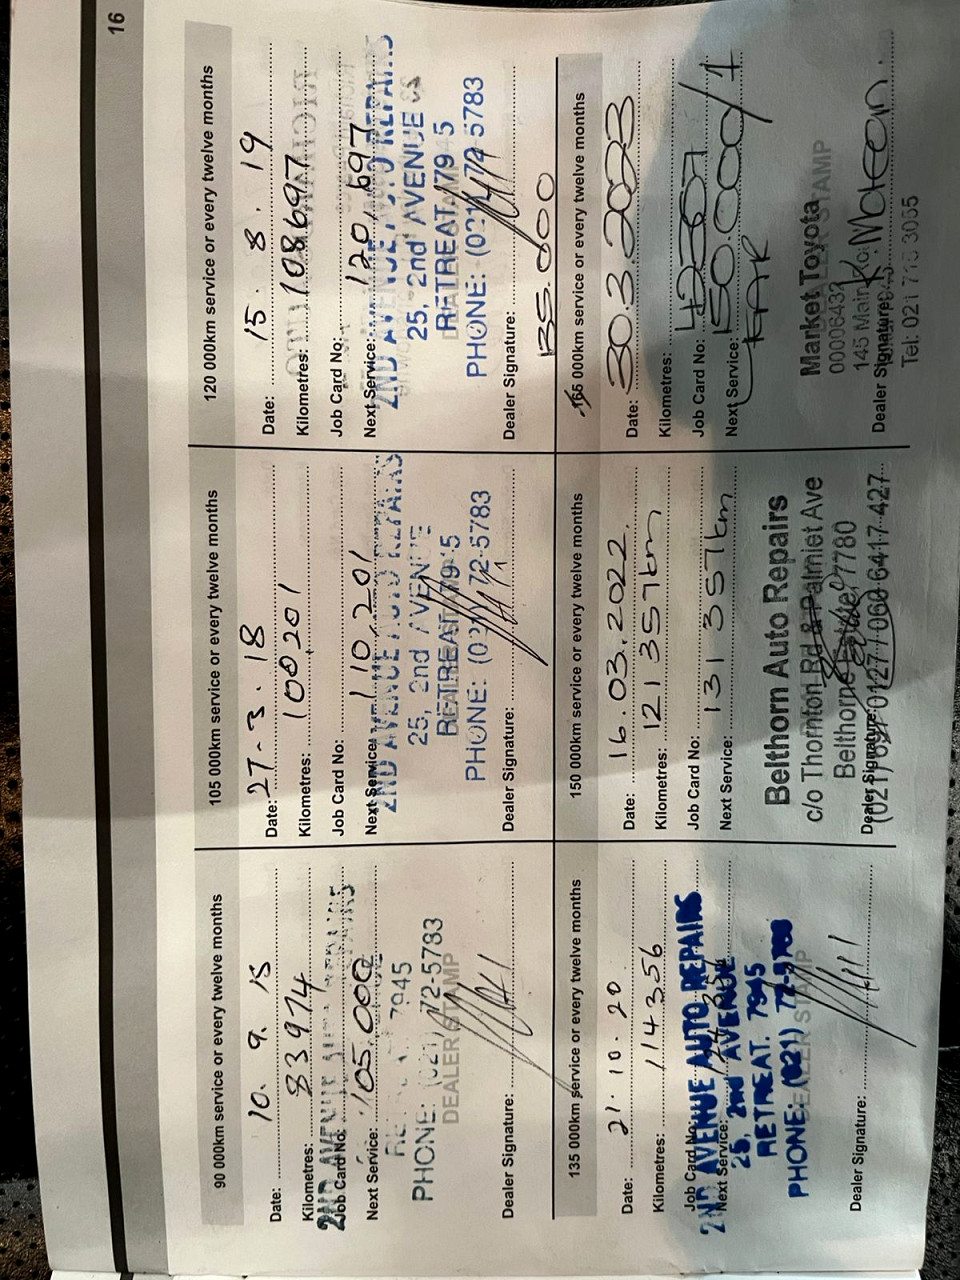 16
90 000km service or every twelve months
Date: 10. 9. 15
Kilometres: 83974
2ND AVENUE AUTO REPAIRS
Job Card No:
Next Service: 105 000
7945
PHONE: (021) 72-5783
DEALER STAMP
Dealer Signature:
105 000km service or every twelve months
Date: 27-3.18
Kilometres: 100201
Job Card No:
Next Service: 110.201
2ND AVENUE AUTO REPAIRS
25, 2nd AVENUE
RETREAT 79 5
PHONE: (021) 72-5783
Dealer Signature:
120 000km service or every twelve months
Date: 15. 8. 19
Kilometres: 108697
Job Card No:
Next Service: 120,697
2ND AVENUE AUTO REPAIRS
25, 2nd AVENUE
RETREAT 79 5
PHONE: (021) 72-5783
Dealer Signature:
135.000
135 000km service or every twelve months
Date: 21. 10. 20
Kilometres: 114356
Job Card No:
2ND AVENUE AUTO REPAIRS
Next Service:
25, 2nd AVENUE
RETREAT. 7945
PHONE: (021)
DEALER STAMP
Dealer Signature:
150 000km service or every twelve months
Date: 16.03.2022.
Kilometres: 121 357km
Job Card No:
Next Service: 131 357km
Belthorn Auto Repairs
c/o Thornton Rd & Palmiet Ave
Belthorne 7780
Dealer Signature:
060 6417 427
000km service or every twelve months
Date: 30.3.2023
Kilometres:
Job Card No: 42567
Next Service: 150.000/1
Market Toyota
STAMP
00006432
145 Main
Dealer Signature:
Tel: 021 713 3055